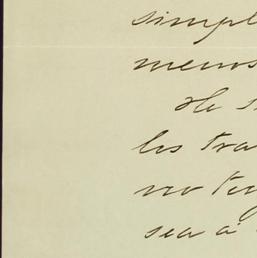 simpl
menos
He s
les tra
no ten
sea a